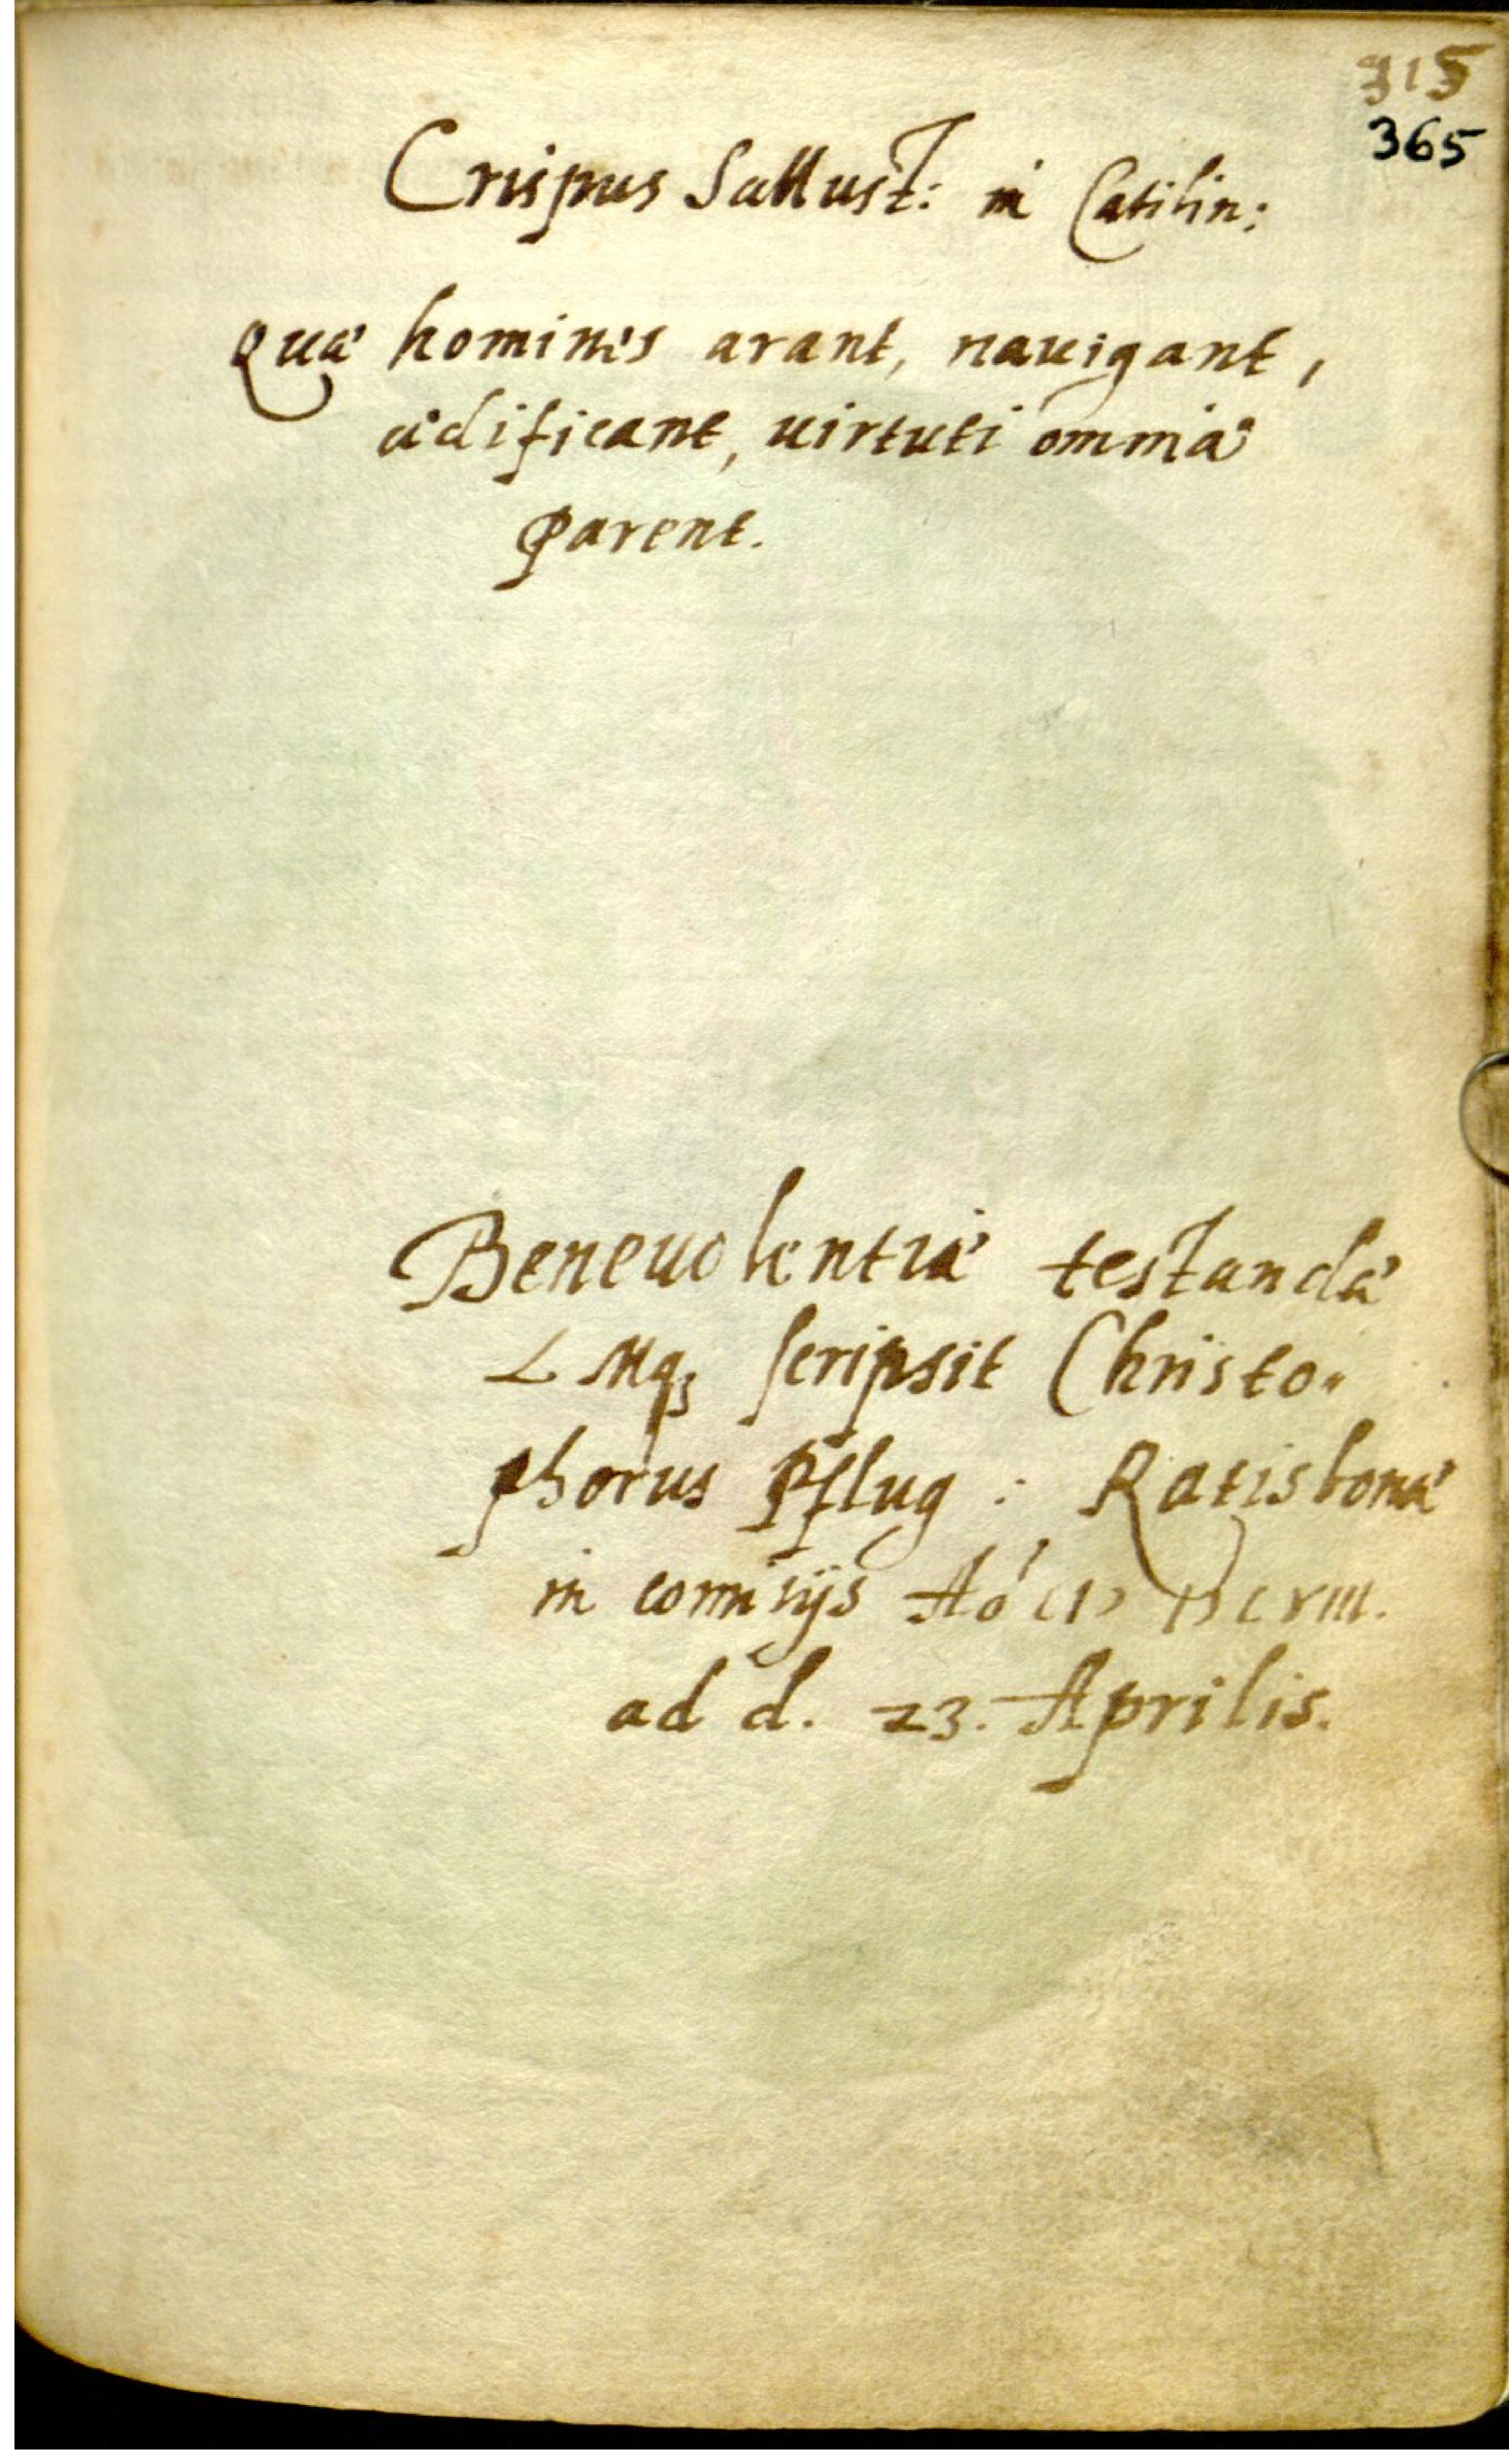 315
365
Crispus Sallust: in Catilin:
Quæ homines arant, nauigant,
ædificant, uirtuti omnia
parent.
Beneuolentiæ testandæ
L Mq3 scripsit Christo„
phorus Pflug : Ratisbonæ
in comitijs Aó CIↃ IↃ CXIII.
ad d. 23. Aprilis.